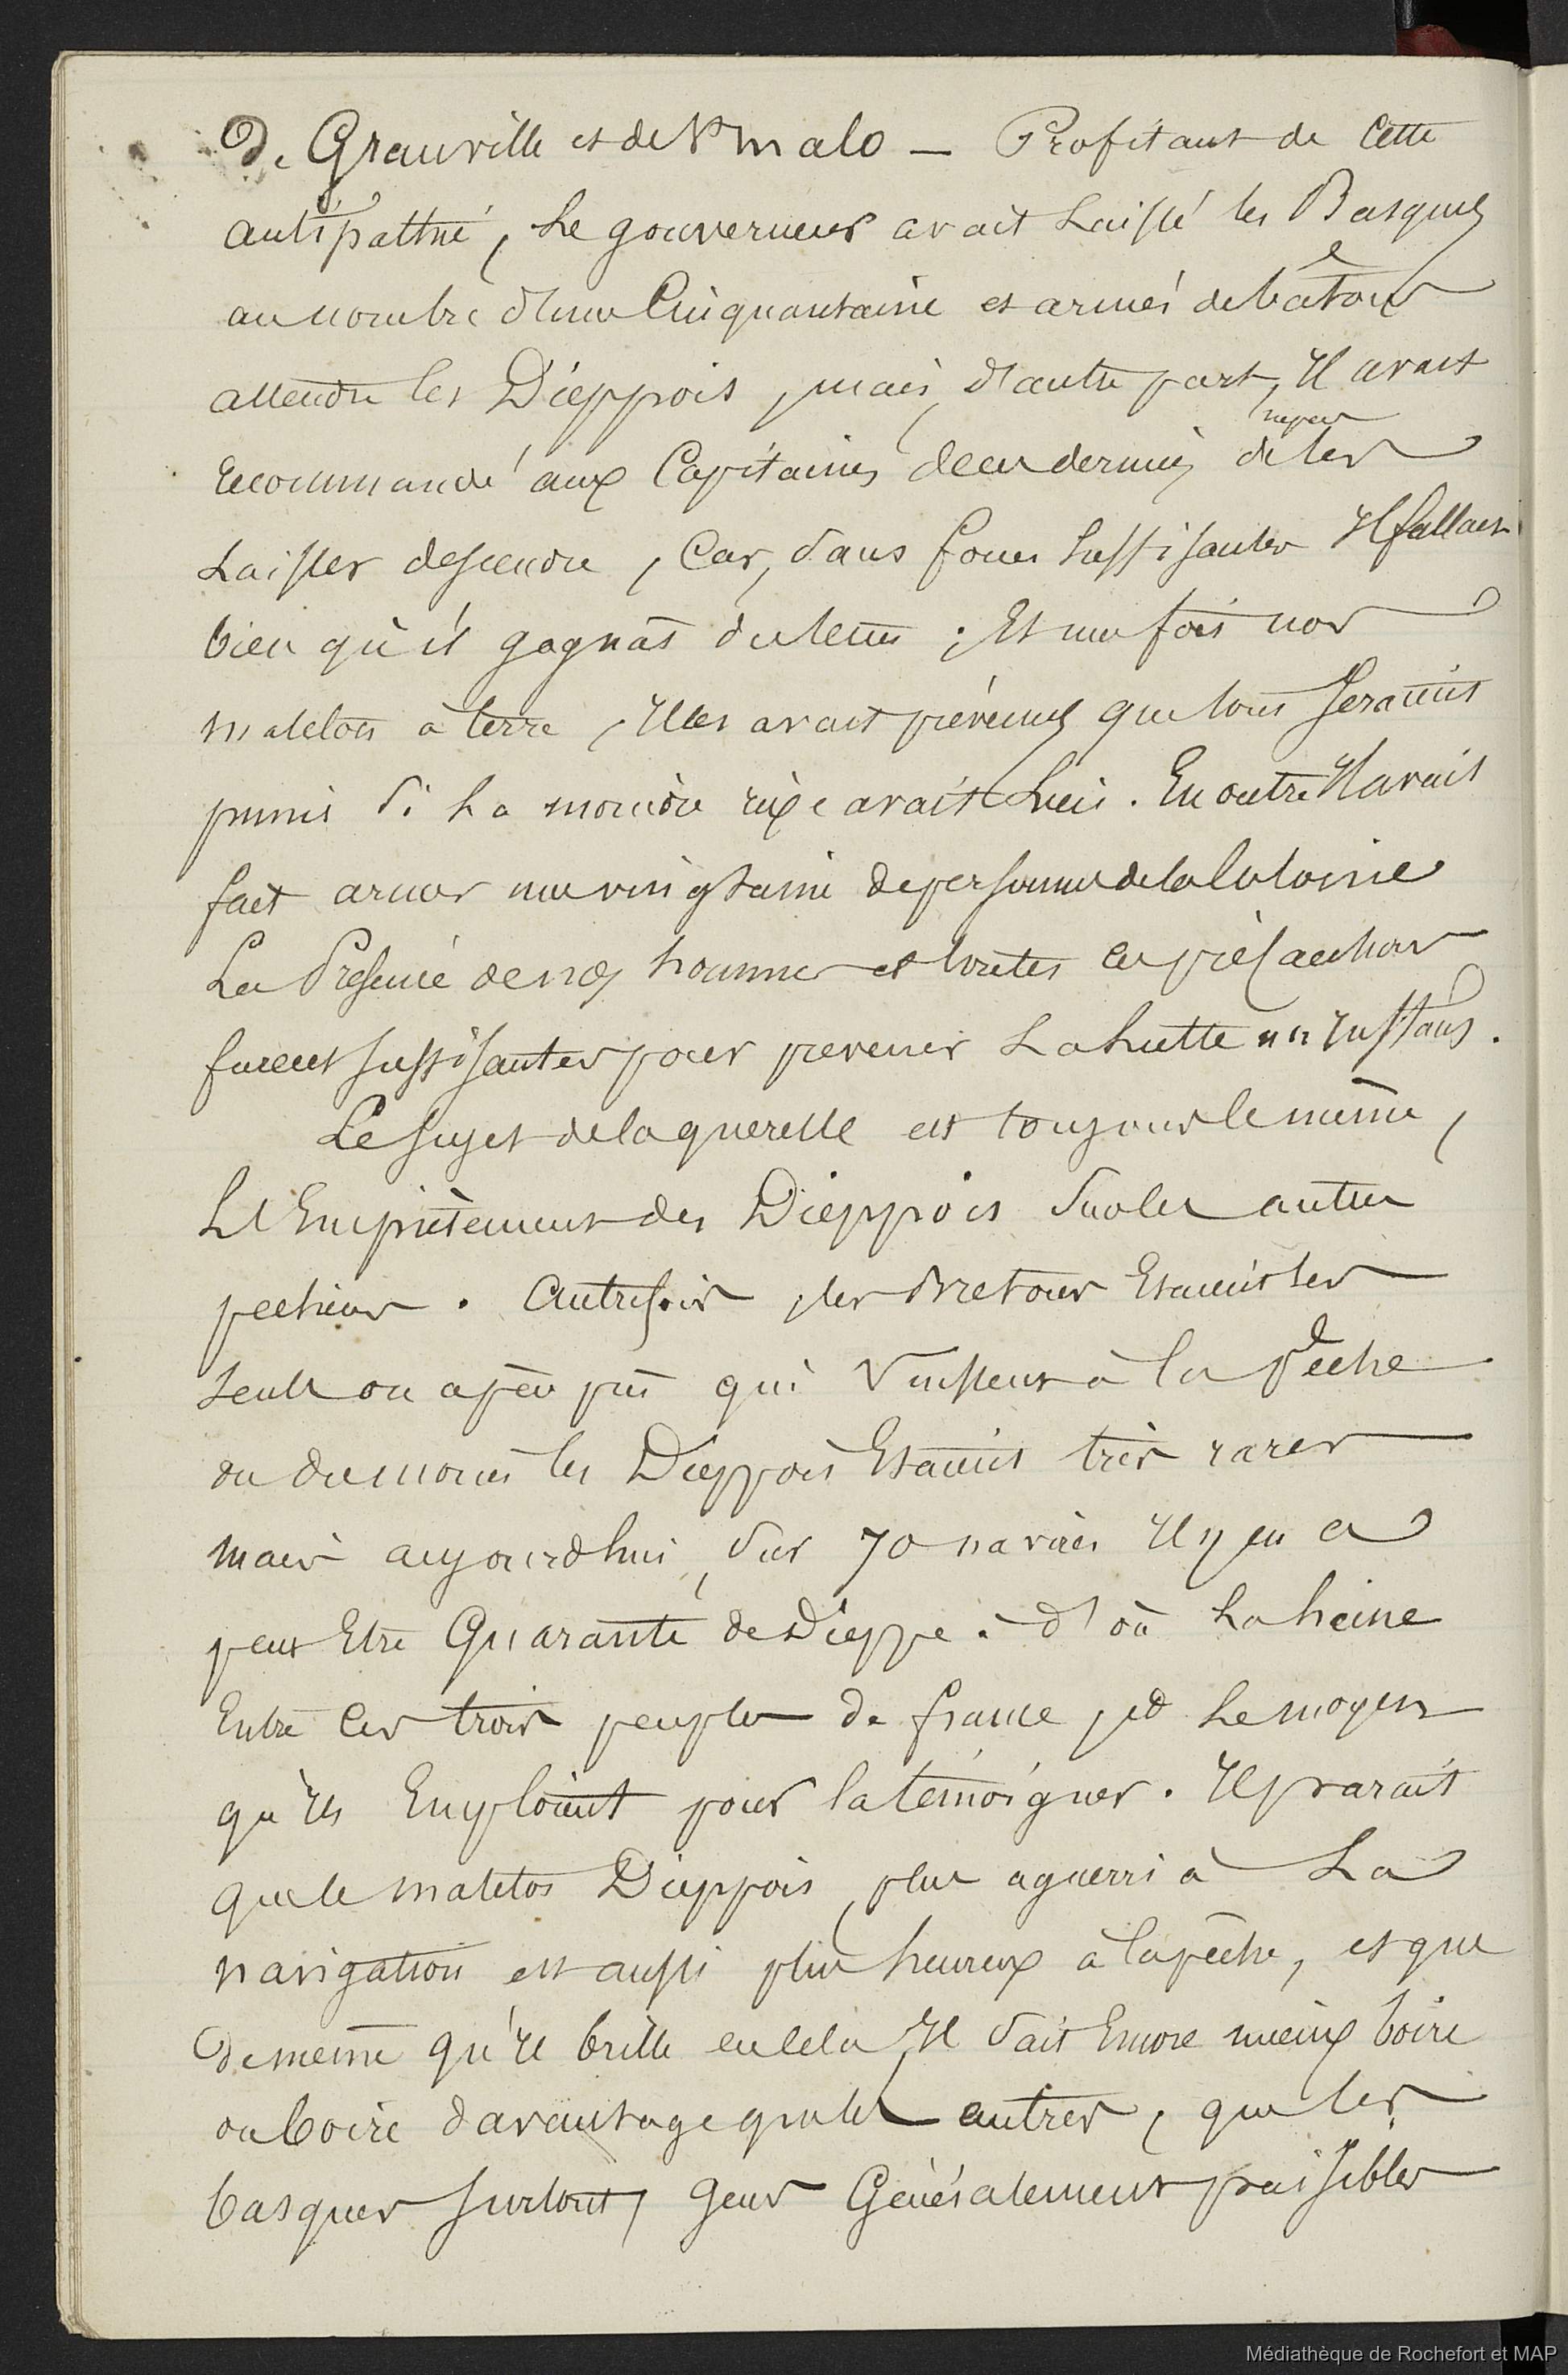 De Granville et de St malo — Profitant de Cette
antipathie, Le gouverneur avait Laissé les Basques
au nombre d'une Cinquantaine et armés de bâtons
attendre les Dieppois, mais, d'autre part, Il avait
recommandé aux Capitaines de ces derniers de ne pas les
Laisser descendre, Car, sans forces suffisantes Il fallait
bien qu'il gagnât du tems ; Et une fois nos
matelots à terre, Il les avait prévenus que tous seraient
punis si La moindre rixe avait Lieu. En outre Il avait
fait armer une vingtaine de personnes de la Colonie
La Présence de nos hommes et toutes ces précautions
furent suffisantes pour prevenir La Lutte un Instans.
Le sujet de la querelle est toujours le même,
L'Empiètement des Dieppois sur les autres
pecheurs. Autrefois, les Bretons Etaient les
seuls ou à peu près qui Vinssent à la Pêche
ou du moins les Dieppois Etaient très rares
mais aujourdhui, sur 70 navires Il y en a
peut Etre Quarante de Dieppe. d'où La haine
Entre ces trois peuples de france, et Le moyen
qu'Ils Emploient pour la témoigner. Il parait
que le matelot Dieppois, plus aguerri à La
navigation est aussi plus heureux à la pêche, et que
de même qu'Il brille en cela Il sait Encore mieux boire
ou boire davantage que les autres, que les
basques surtout, gens Généralement paisibles
Médiathèque de Rochefort et MAP